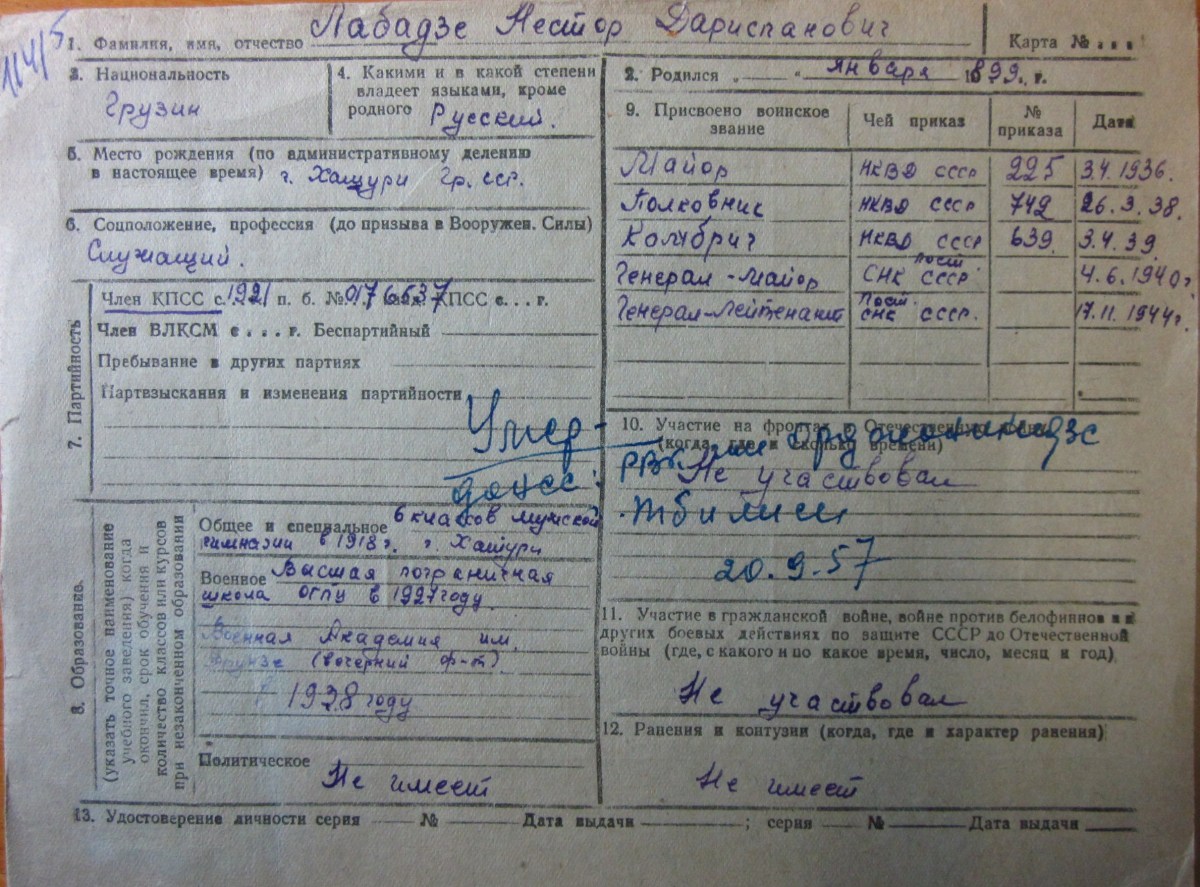 1145
1. Фамилия, имя, отчество Лабадзе Нестор Дариспанович
Карта №...
3. Национальность
Грузин
4. Какими и в какой степени
владеет языками, кроме
родного Русский.
2. Родился „ “ января 1899 г.
5. Место рождения (по административному делению
в настоящее время) г. Хашури Гр. сср.
6. Соцположение, профессия (до призыва в Вооружен. Силы)
Служащий.
7. Партийность
Член КПСС с 1921 п. б. № 0176637 КПСС с... г.
Член ВЛКСМ с.... г. Беспартийный
Пребывание в других партиях
Партвзыскания и изменения партийности
8. Образование.
(указать точное наименование
учебного заведения) когда
окончил, срок обучения и
количество классов или курсов
при незаконченном образовании
Общее и специальное 6 классов мужской
гимназии в 1918 г. г. Хашури
Военное Высшая пограничная
школа ОГПУ в 1927 году.
Военная Академия им.
Фрунзе (вечерний ф-т)
1938 году
Политическое
Не имеет
9. Присвоено воинское
звание
Чей приказ
№
приказа
Дата
Майор НКВД СССР 225 3.4.1936.
Полковник НКВД СССР 742 26.3.38.
Комбриг НКВД СССР 639 3.4.39.
Генерал-Майор Пост. СНК СССР 4.6.1940 г
Генерал-Лейтенант Пост. СНК СССР. 17.11.1944 г.
10. Участие на фронтах в Отечественной войне
(когда, где и сколько времени)
Не участвовал
Умер-
донес: РВК им Орджоникидзе
Тбилиси
20.9.57
11. Участие в гражданской войне, войне против белофиннов и в
других боевых действиях по защите СССР до Отечественной
войны (где, с какого и по какое время, число, месяц и год)
Не участвовал
12. Ранения и контузии (когда, где и характер ранения)
Не имеет
13. Удостоверение личности серия № Дата выдачи ; серия № Дата выдачи